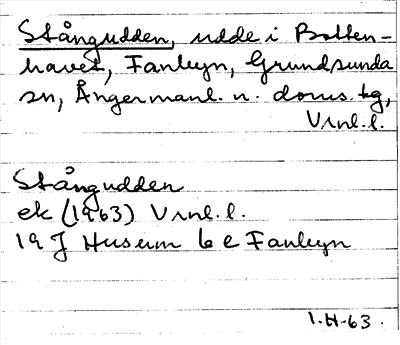 Stångudden, udde i Botten-
havet, Fanbyn, Grundsunda
sn, Ångermanl. n. doms.bg,
Vnl.l.
Stångudden
ek (1963) Vnl.l.
19 J Husum 6 e Fanbyn
1.H-63.